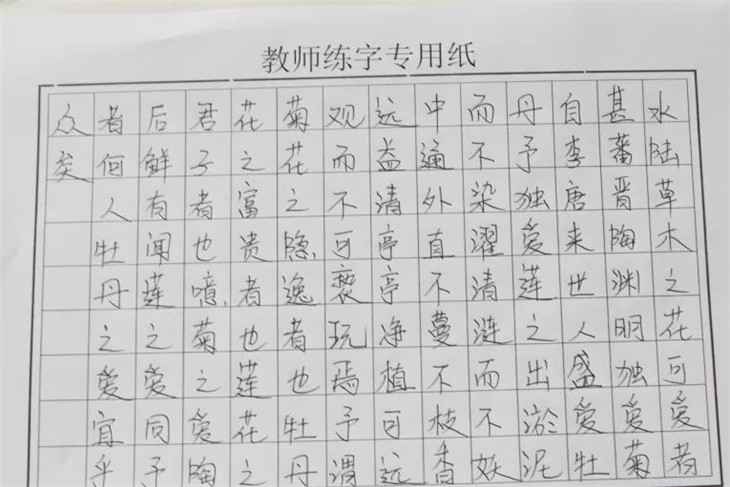 教师练字专用纸
水陆草木之花可爱者
甚蕃晋陶渊明独爱菊
自李唐来世人盛爱牡
丹予独爱莲之出淤泥
而不染濯清涟而不妖
中通外直不蔓不枝香
远益清亭亭净植可远
观而不可亵玩焉予谓
菊花之隐逸者也牡丹
花之富贵者也莲花之
君子者也噫菊之爱陶
后鲜有闻莲之爱同予
者何人牡丹之爱宜乎
众矣